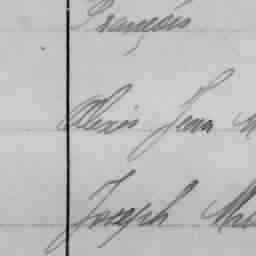 François
Alexis Jean M
Joseph Mic